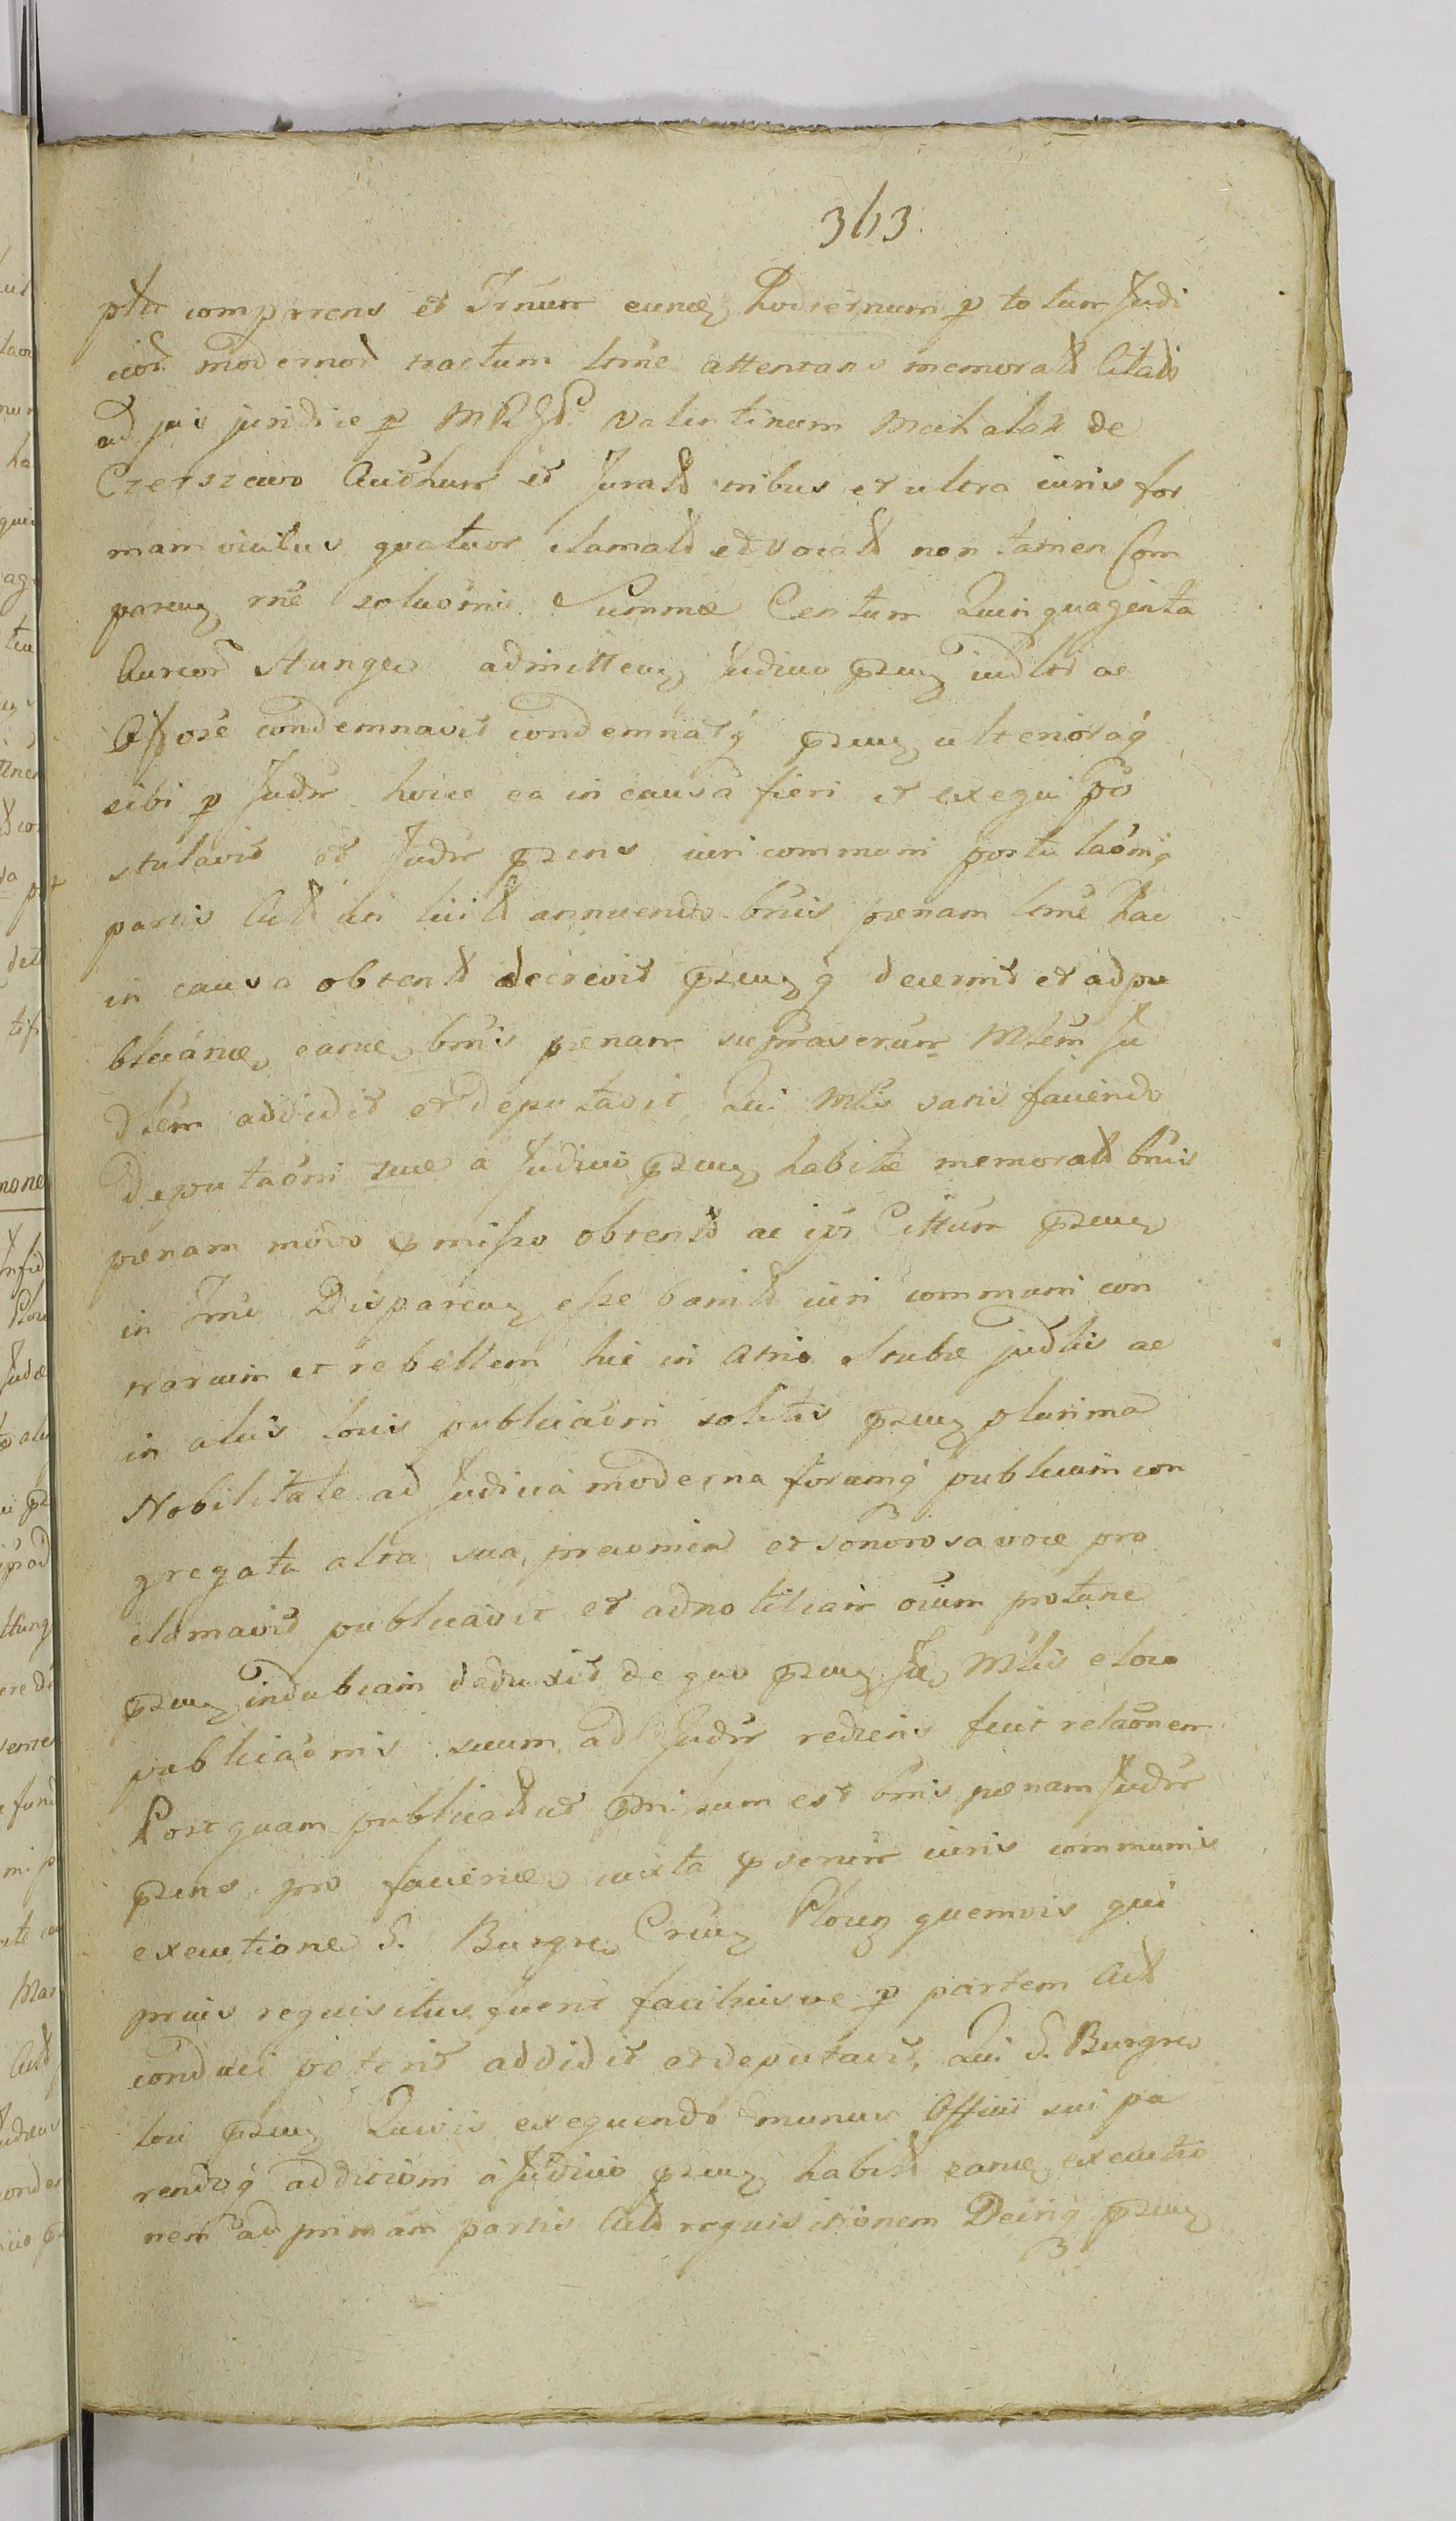 363.
ptr comparens et Trnum eunq hodiernum p totum Judi
cior modernor tractum ltme attentans memoratt Citatt
ad jus juridice p MRGD Valentinum Michalak de
Czerszewo Authum et Juratt tribus et ultra iuris for
mam vicibus quatuor clamatt et vocatt non tamen Com
paren rne soluonis Summæ Centum Quinquaginta
Aureor Hunger admitten Judicio pzen iudltr ac
Offose condemnavit condemnatq pzen ulterioraq
sibi p Judm hocce ea in causa fieri et exequi po
stulavit et Judm pzens iuri communi postulaonig
partis Actt uti licitt annuendo bnis pœnam ltme hac
in causa obtentt decrevit pzenq decernit et ad pu
blicanæ eamc bnis pœnam suprascrum Mtem Ju
dlem addidit et deputavit Qui Mtis satis faciendo
Deputaoni suæ a Judicio pzen habitæ memoratt bnis
pœnam modo pmisso obtentt ac ips Cittum pzen
in Tmi Disparen esse banitt iuri communi con
trarium et rebellem hic in atrio Stubæ judlis ac
in aliis locis publicaoni solitis pzen plurima
Nobilitate ad Judicia moderna forumq publicum con
gregata alta sua preconica et sonorosa voce pro
clamavit publicavit et ad notitiam oium protunc
pzen indubiam deduxit de quo pzen Ju Mtis e loco
publicaonis suum ad Judm rediens fecit relaonem
Post quam publicatt ut pmissum est bnis pœnam Judm
pzens pro faciendæ iuxta pscrum iuris communis
executione S. Burgre Cruz Plocen quemvis qui
prius requisitus fuerit faciliusve p partem Actt
conduci poterit addidit et deputavit, Qui S. Burgre
loci pzen Quivis exequendo munus Officii sui pa
rendoq additioni a Judicio pzen habitt eamc executio
nem ad primam partis Actt requisitionem Deinq pzen